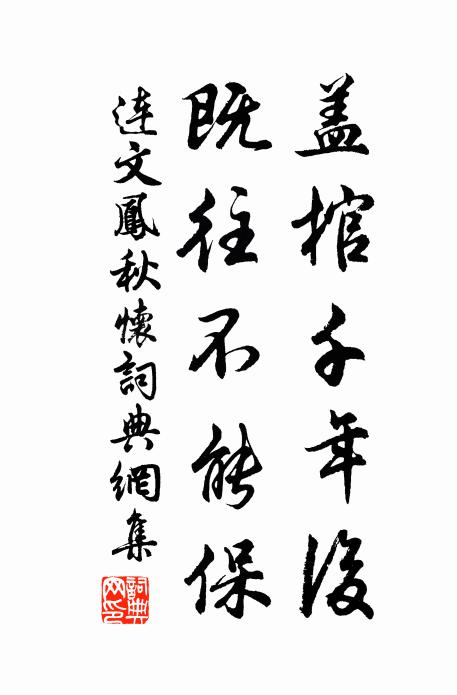 盖棺千年後
既往不能保
連文鳳秋懷詞典網集
詞典網印